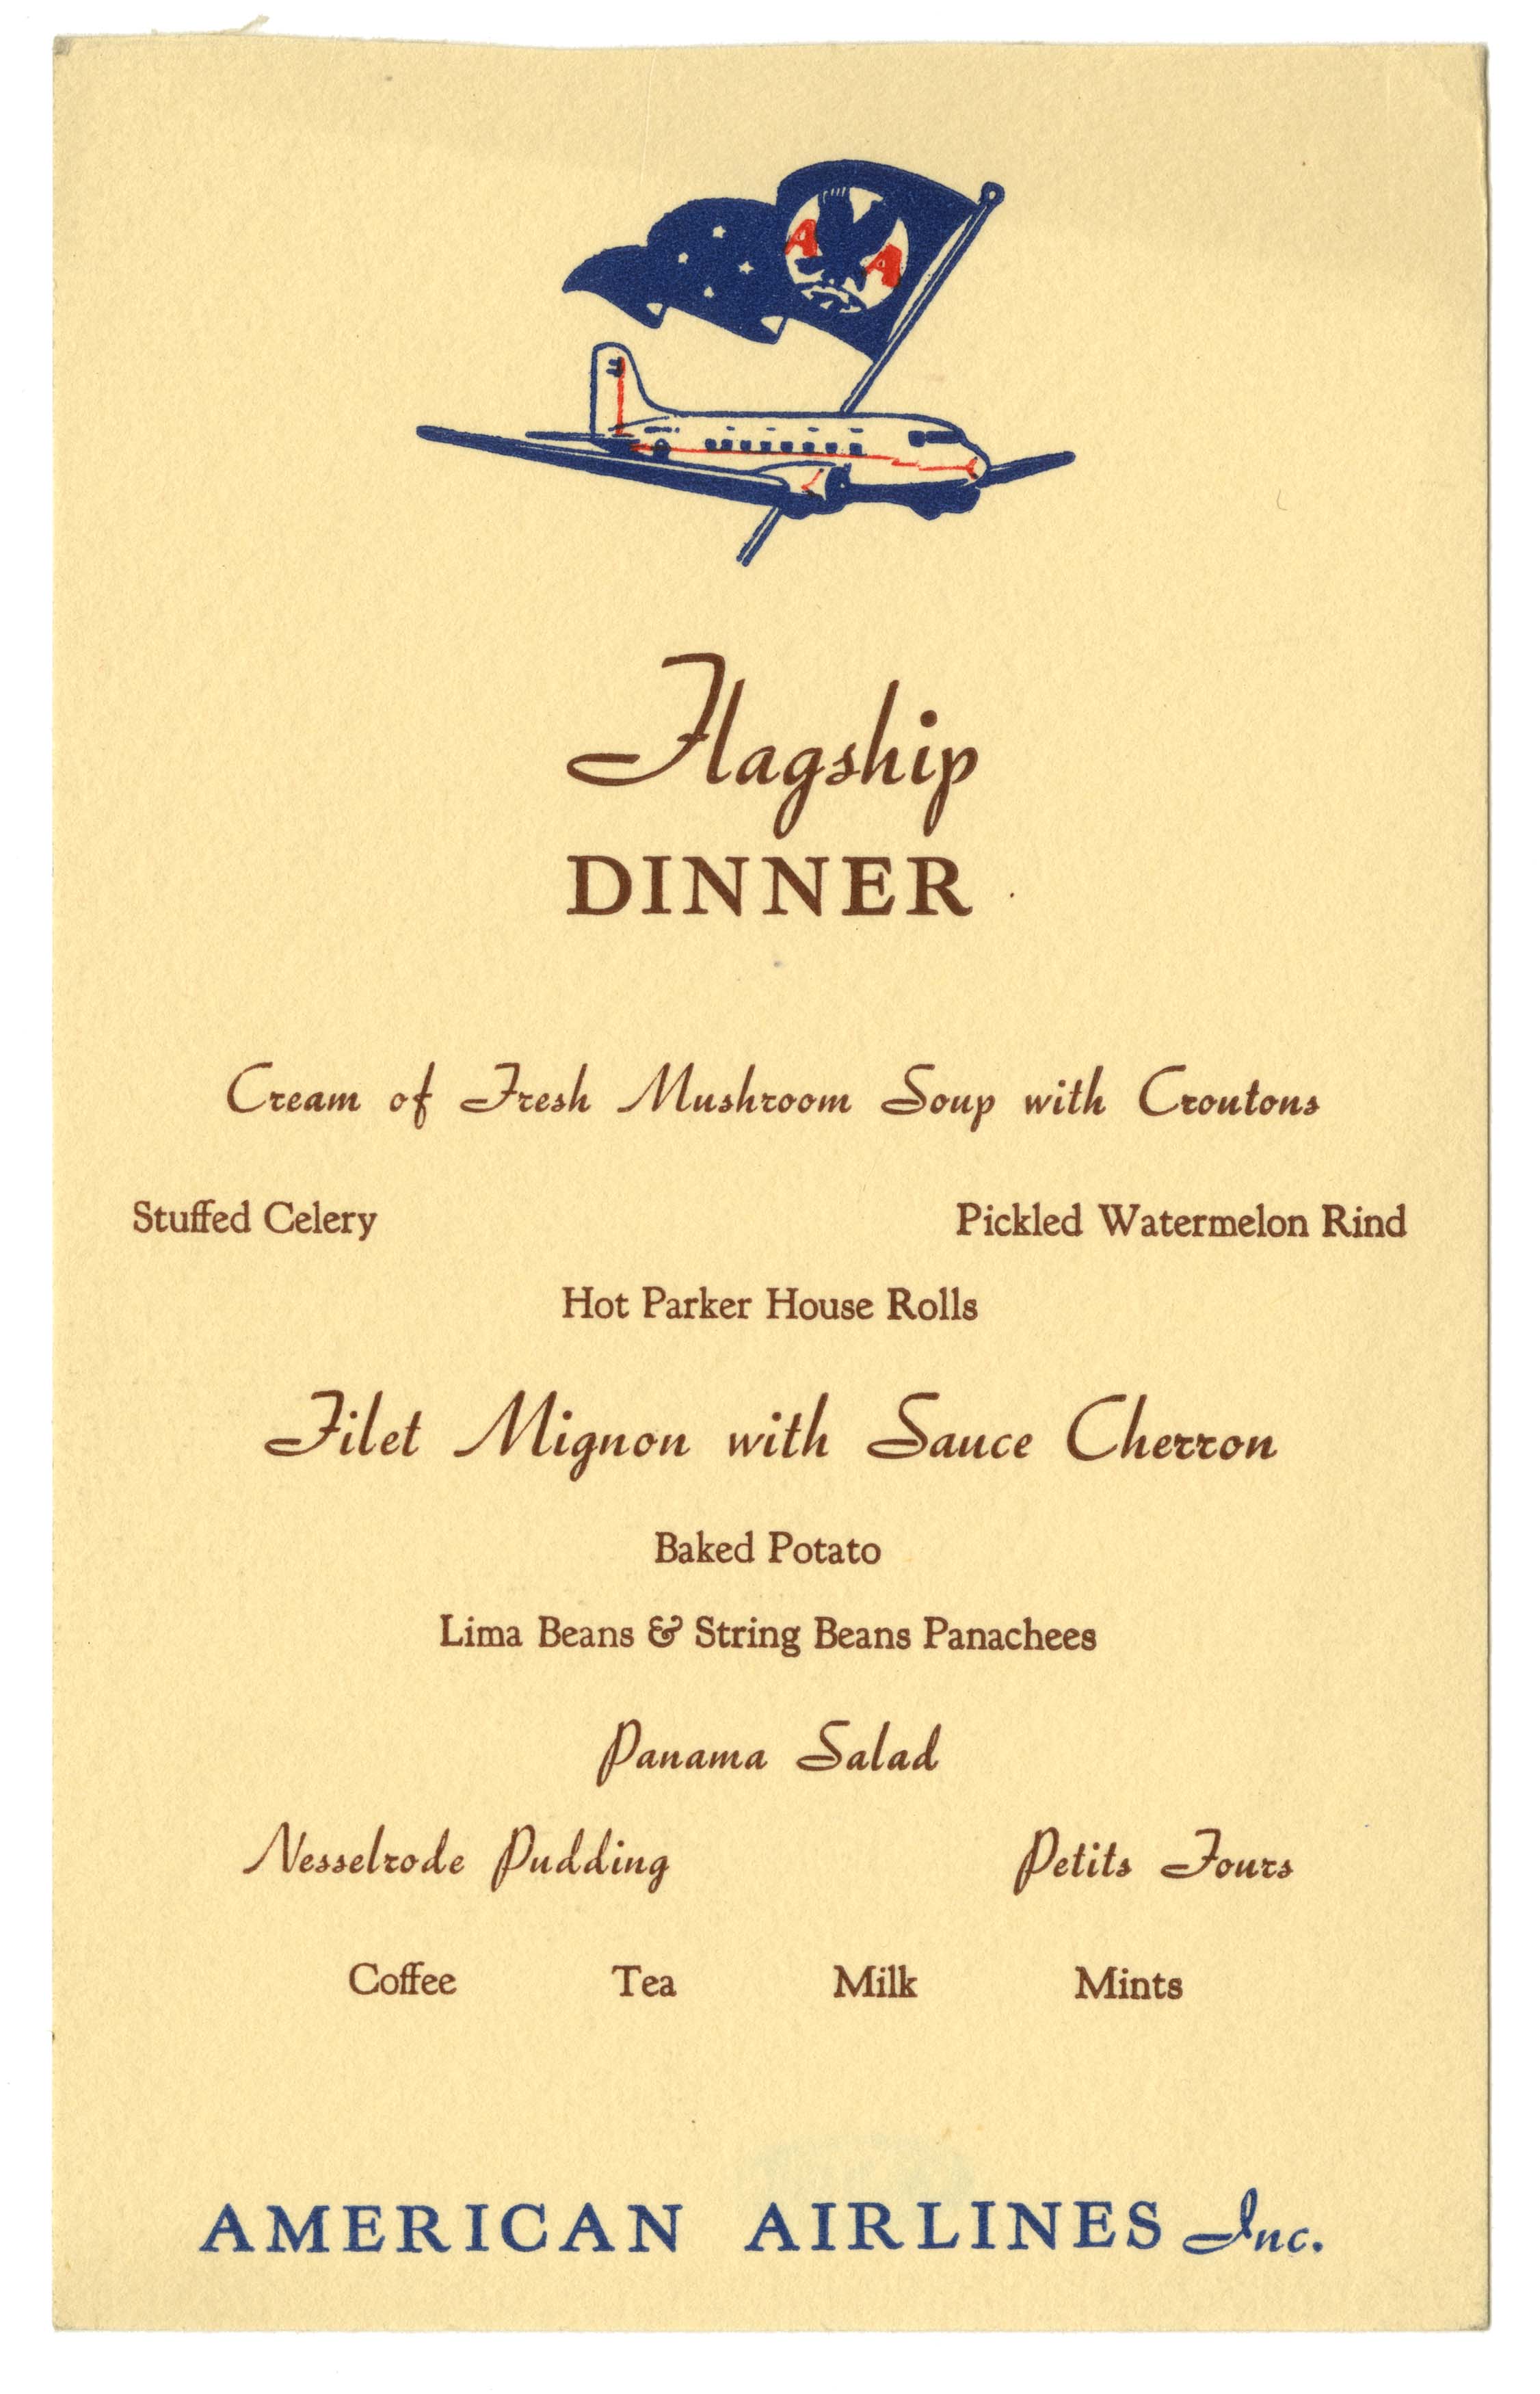 A A
Flagship
DINNER
Cream of Fresh Mushroom Soup with Croutons
Stuffed Celery Pickled Watermelon Rind
Hot Parker House Rolls
Filet Mignon with Sauce Cherron
Baked Potato
Lima Beans & String Beans Panachees
Panama Salad
Nesselrode Pudding Petits Fours
Coffee Tea Milk Mints
AMERICAN AIRLINES Inc.